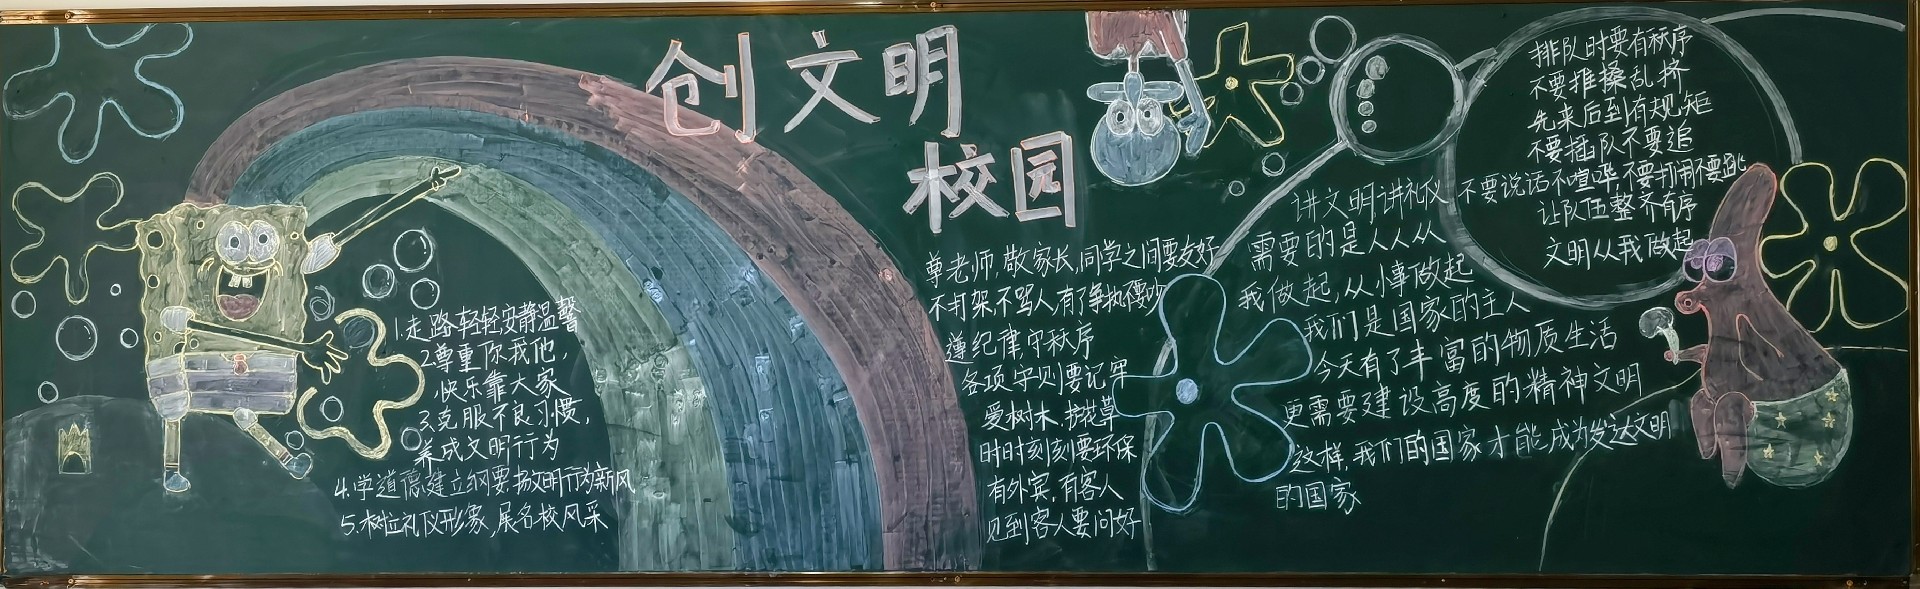 创文明
校园
1.走路轻轻安静温馨
2.尊重你我他,
快乐靠大家
3.克服不良习惯,
养成文明行为
4.学道德建立纲要,扬文明行为新风
5.树立礼仪形象,展名校风采
尊老师,敬家长,同学之间要友好
不打架,不骂人,有了争执不要吵
遵纪律,守秩序
各项守则要记牢
爱树木,护花草
时时刻刻要环保
有外宾,有客人
见到客人要问好
讲文明讲礼仪
需要的是人人从
我做起,从小事做起
我们是国家的主人
今天有了丰富的物质生活
更需要建设高度的精神文明
这样,我们的国家才能成为发达文明
的国家
排队时要有秩序
不要推搡乱挤
先来后到有规矩
不要插队不要追
不要说话不喧哗不要打闹不要跳
让队伍整齐有序
文明从我做起